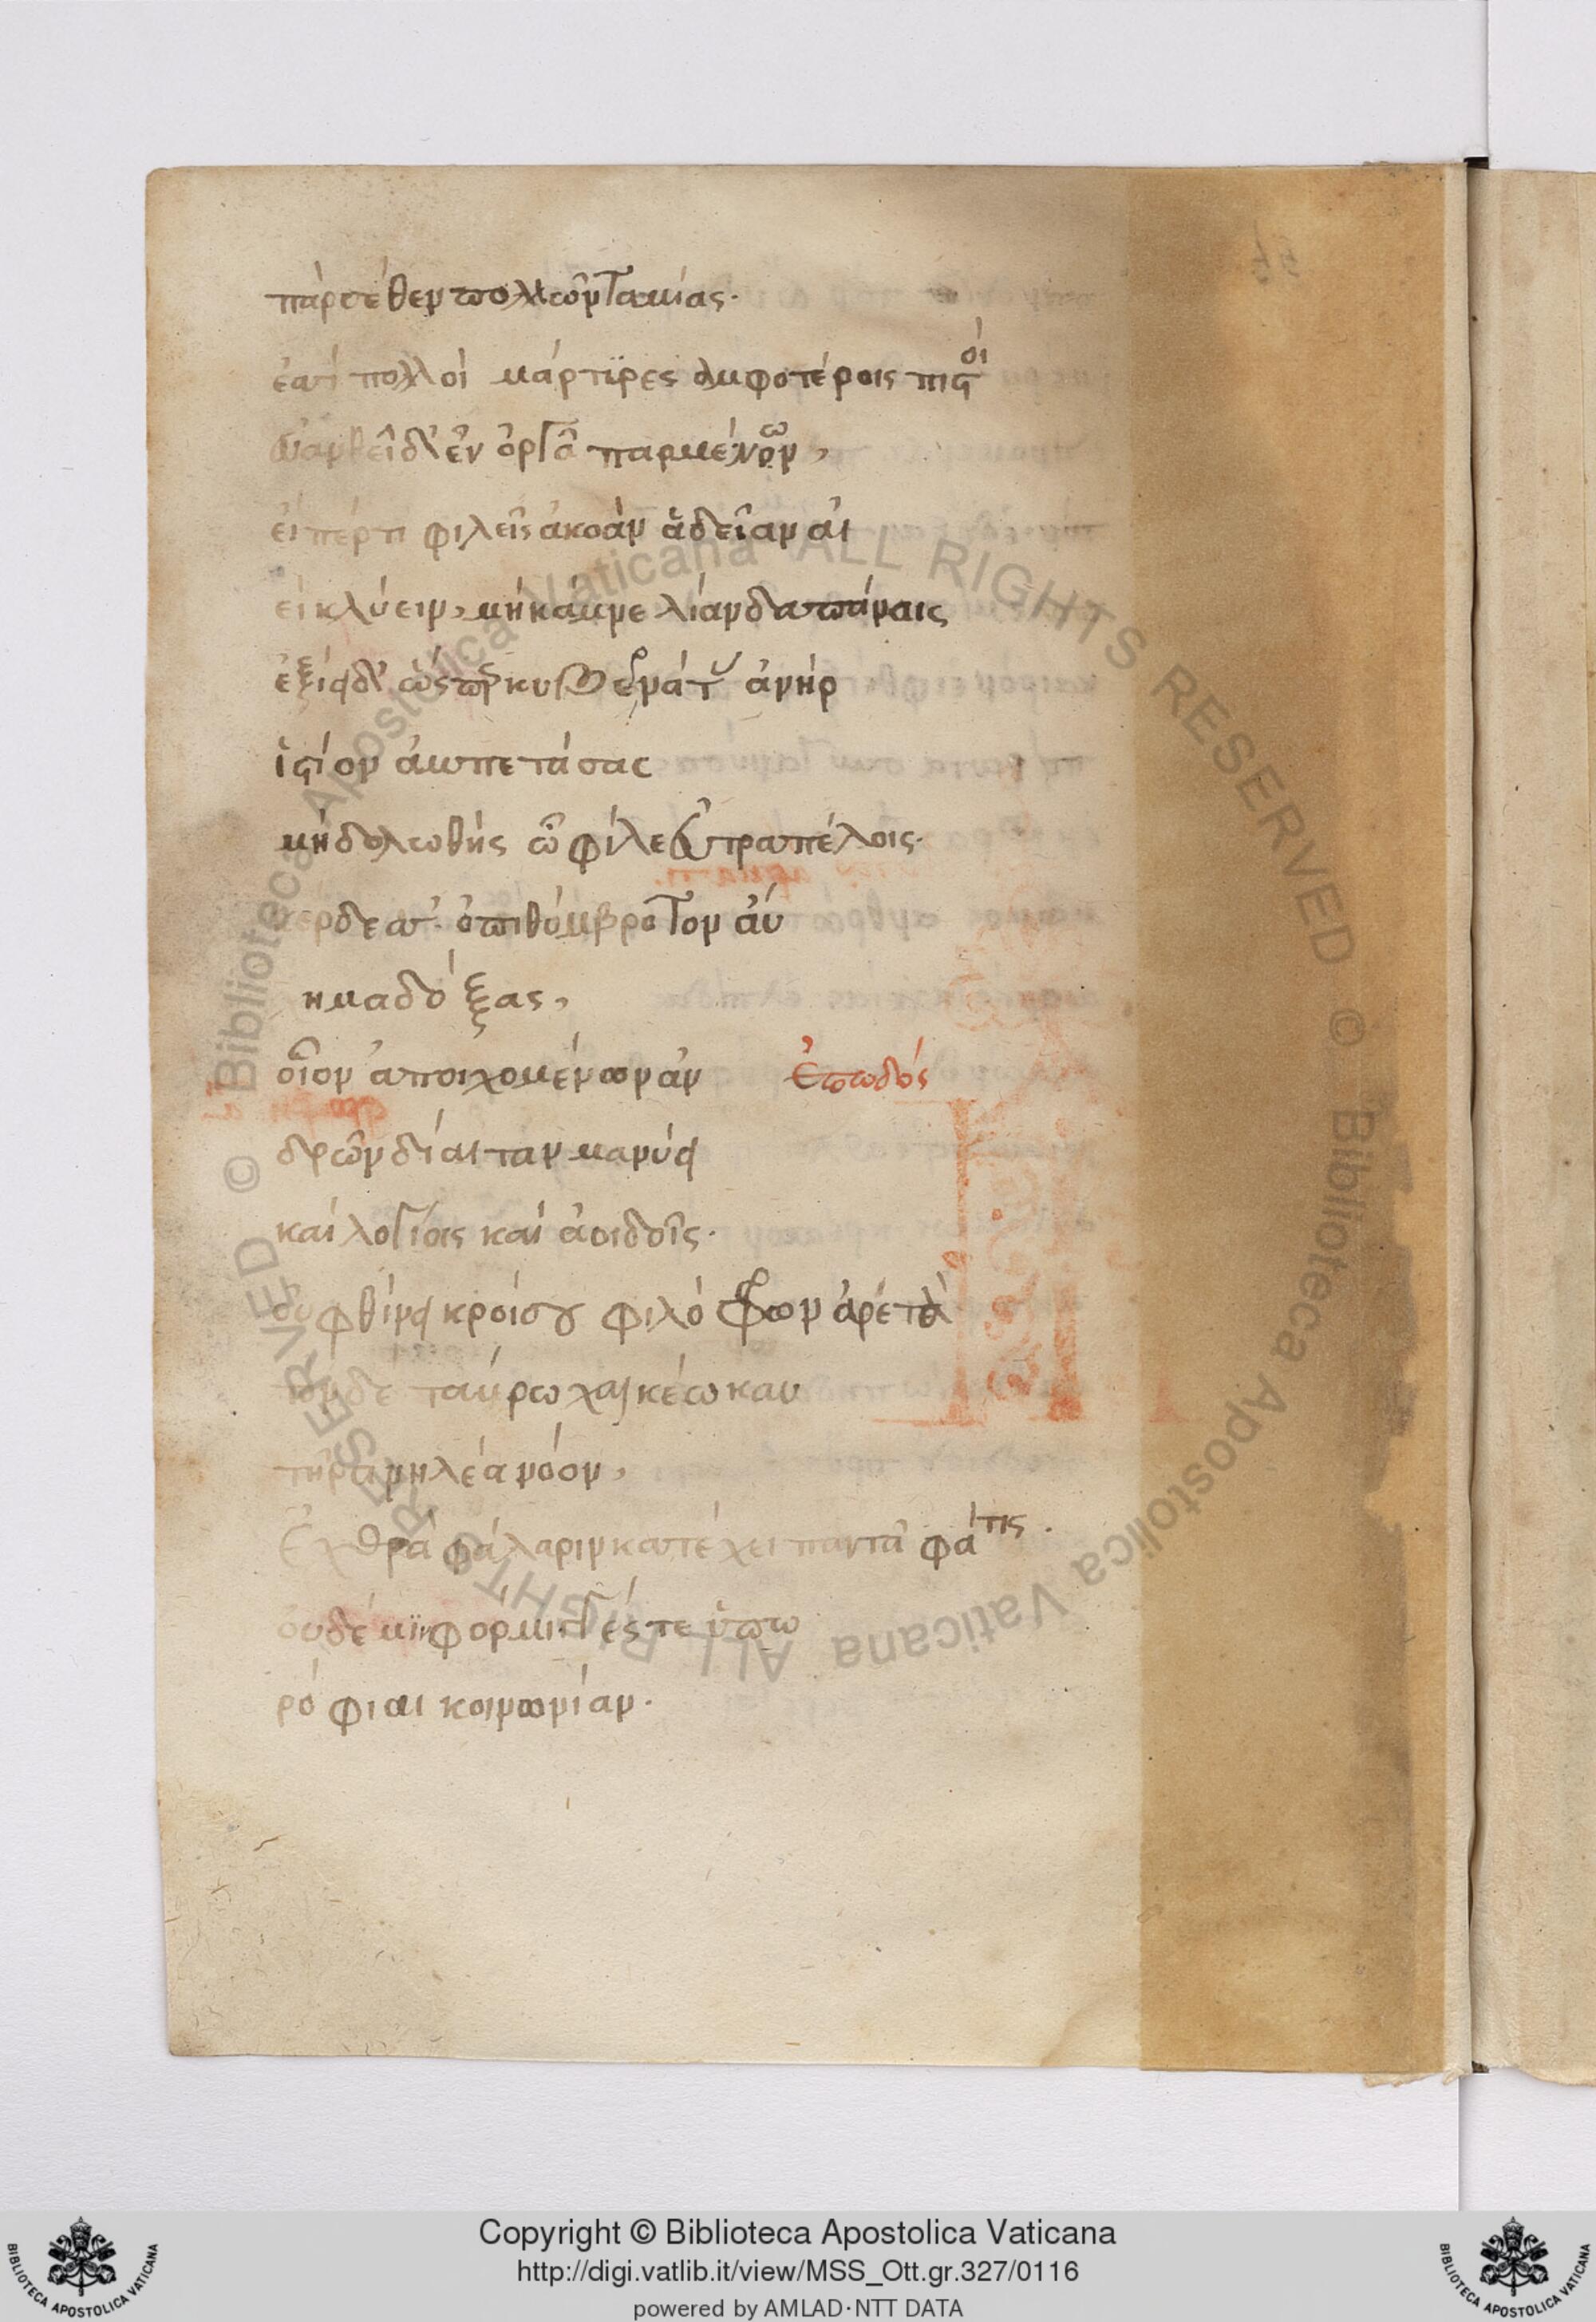 πὰρ σέθεν πολλῶν ταμίας·
ἐσσὶ πολλοὶ μάρτϋρες ἀμφοτέροις πιστοὶ
εὐανθεῖ δ' ἐν ὀργᾷ παρμένων,
εἴπέρ τι φιλεῖς ἀκοὰν ἁδεῖαν αἰ
εὶ κλύειν, μὴ κάμνε λίαν δαπάναις
ἐξίει δ' ὥσπερ κυβερνάτου ἀνὴρ
ἱστίον ἀμπετάσας
μὴ δολωθῆς ὦ φίλε εὐτραπέλοις·
κερδεσσ' ὀπιθόμβροτον αὐ
ημα δόξας,
οἶον ἀποιχομένων ἀν ἐπωδός
δρῶν δίαιταν μανύει
καὶ λογίοις καὶ ἀοιδοῖς·
οὐ φθίνει κροίσου φιλόφρων ἀρετὰ
τὸν δὲ ταύρω χαλκέω καυ
τῆρα νηλέα νόον,
Ἐχθρὰ φάλαριν κατέχει παντᾶ φάτις.
οὐδέ μϊν φόρμιγγές τε ὑπω
ρόφιαι κοινωνίαν·
© Biblioteca Apostolica Vaticana ALL RIGHTS RESERVED © Biblioteca Apostolica Vaticana ALL RIGHTS RESERVED
Copyright © Biblioteca Apostolica Vaticana
http://digi.vatlib.it/view/MSS_Ott.gr.327/0116
powered by AMLAD·NTT DATA
BIBLIOTECA APOSTOLICA VATICANA
BIBLIOTECA APOSTOLICA VATICANA